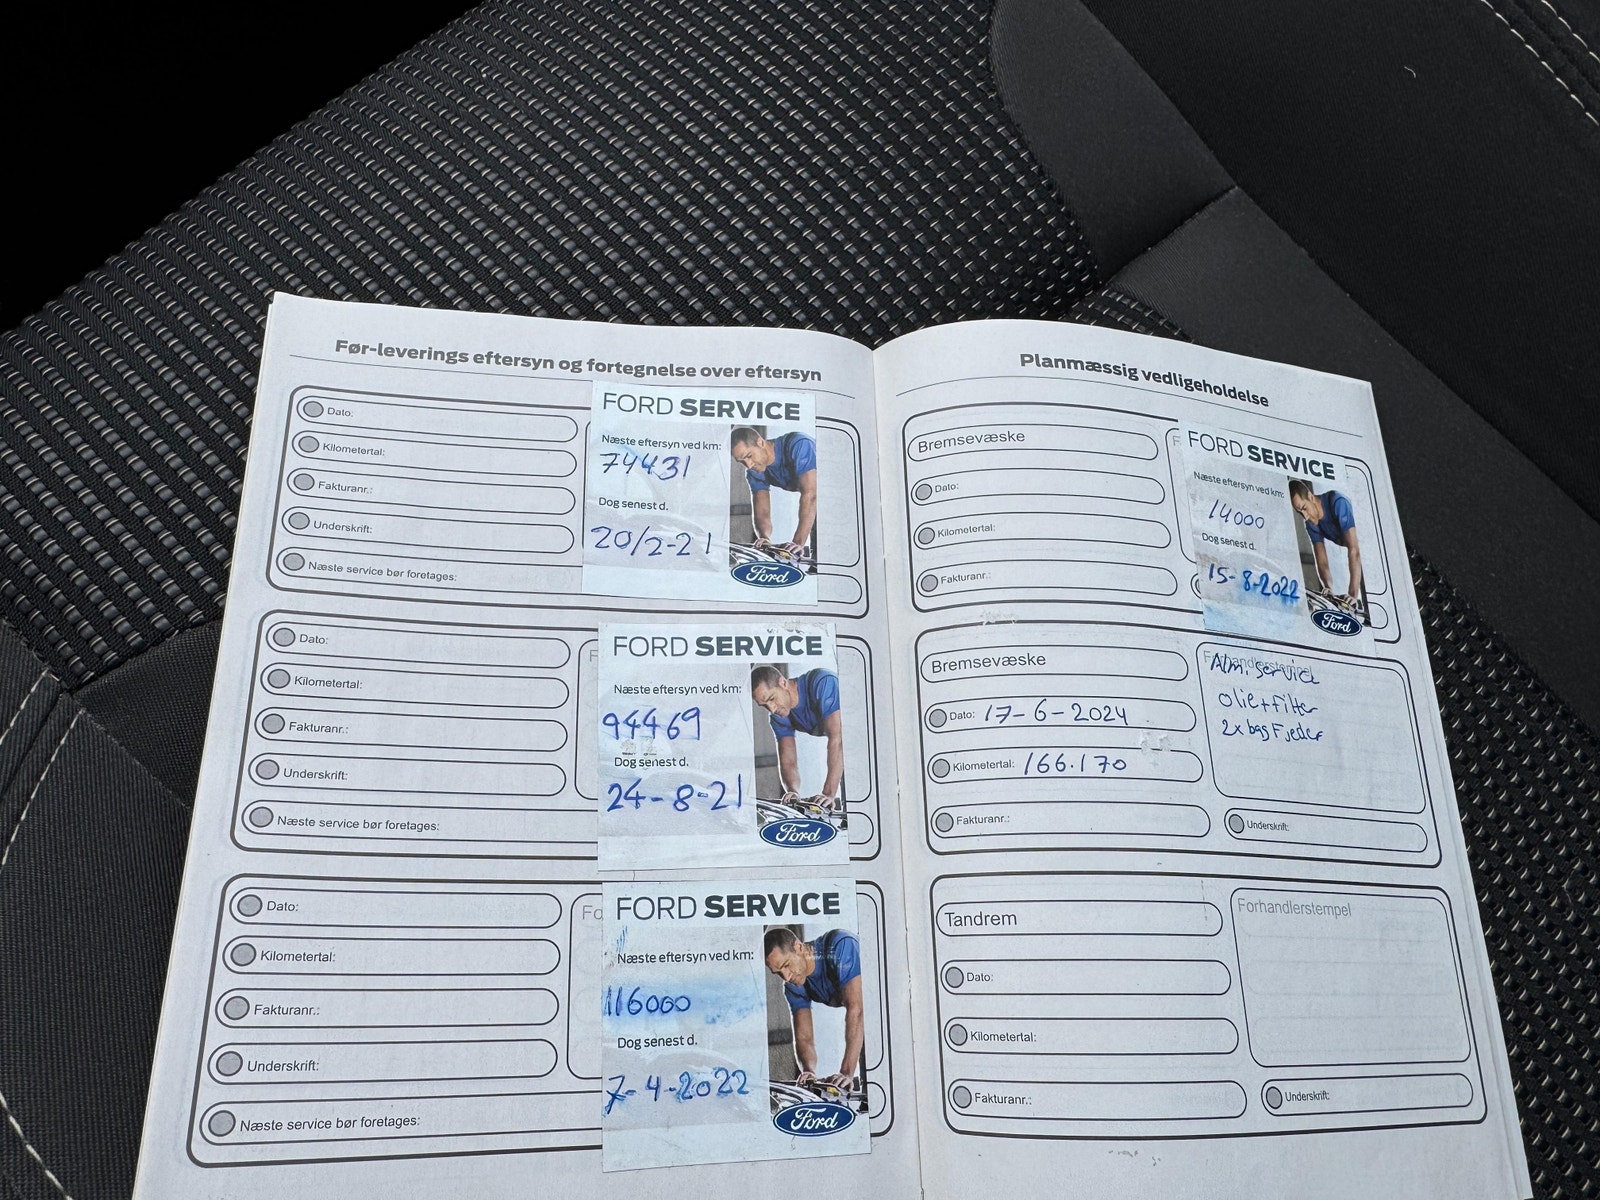 Før-leverings eftersyn og fortegnelse over eftersyn
Dato:
Kilometertal:
Fakturanr.:
Underskrift:
Næste service bør foretages:
FORD SERVICE
Næste eftersyn ved km:
74431
Dog senest d.
20/2-21
Ford
Dato:
Kilometertal:
Fakturanr.:
Underskrift:
Næste service bør foretages:
F
FORD SERVICE
Næste eftersyn ved km:
94469
Dog senest d.
24-8-21
Ford
Dato:
Kilometertal:
Fakturanr.:
Underskrift:
Næste service bør foretages:
Fo
FORD SERVICE
Næste eftersyn ved km:
116000
Dog senest d.
7-4-2022
Ford
Planmæssig vedligeholdelse
Bremsevæske
Dato:
Kilometertal:
Fakturanr.:
F
FORD SERVICE
Næste eftersyn ved km:
14000
Dog senest d.
15-8-2022
Ford
Bremsevæske
Dato: 17-6-2024
Kilometertal: 166.170
Fakturanr.:
Forhandlerstempel
Alm. service
olie+filter
2x bag Fjeder
Underskrift:
Tandrem
Dato:
Kilometertal:
Fakturanr.:
Forhandlerstempel
Underskrift: